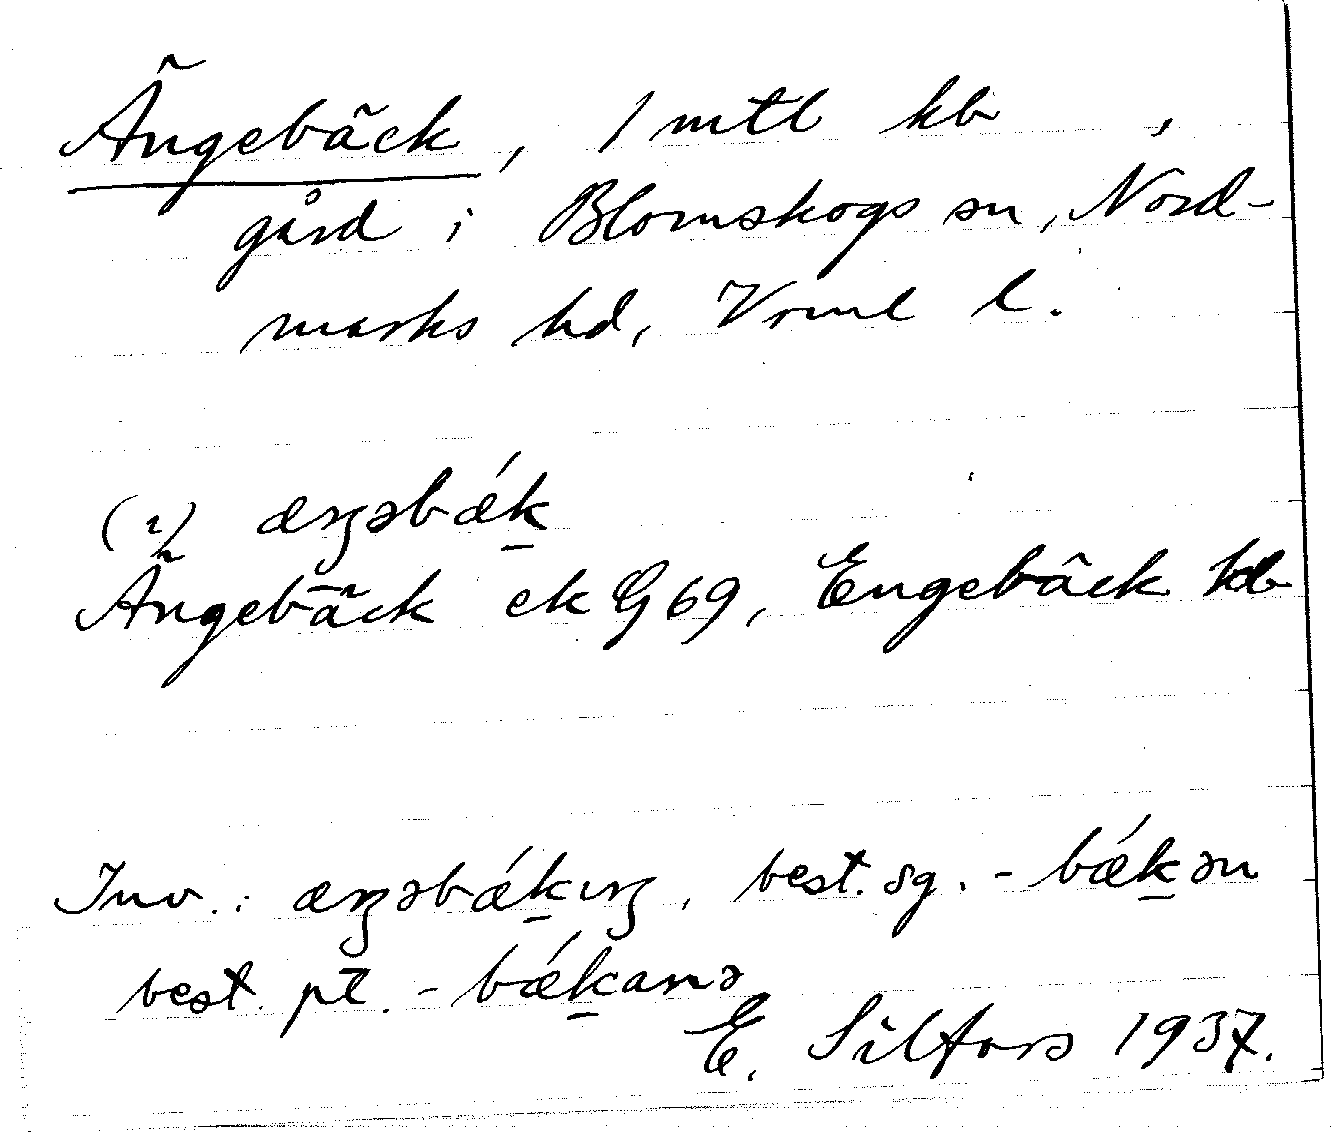 Ängebäck, 1 mtl kb ,
gård i Blomskogs sn, Nord-
marks hd, Vrml l.
(i) æŋəbǽk̠
Ängebäck ek G 69, Engebäck kb
Inv.: æŋəbǽk̠ıŋ, best. sg. -bǽk̠ən
best. pl. -bǽk̠anə
E. Silfors 1937.